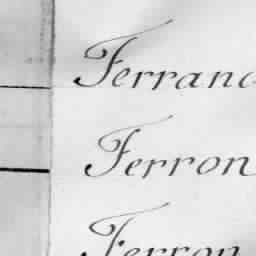 Ferrand
Ferron
Ferron